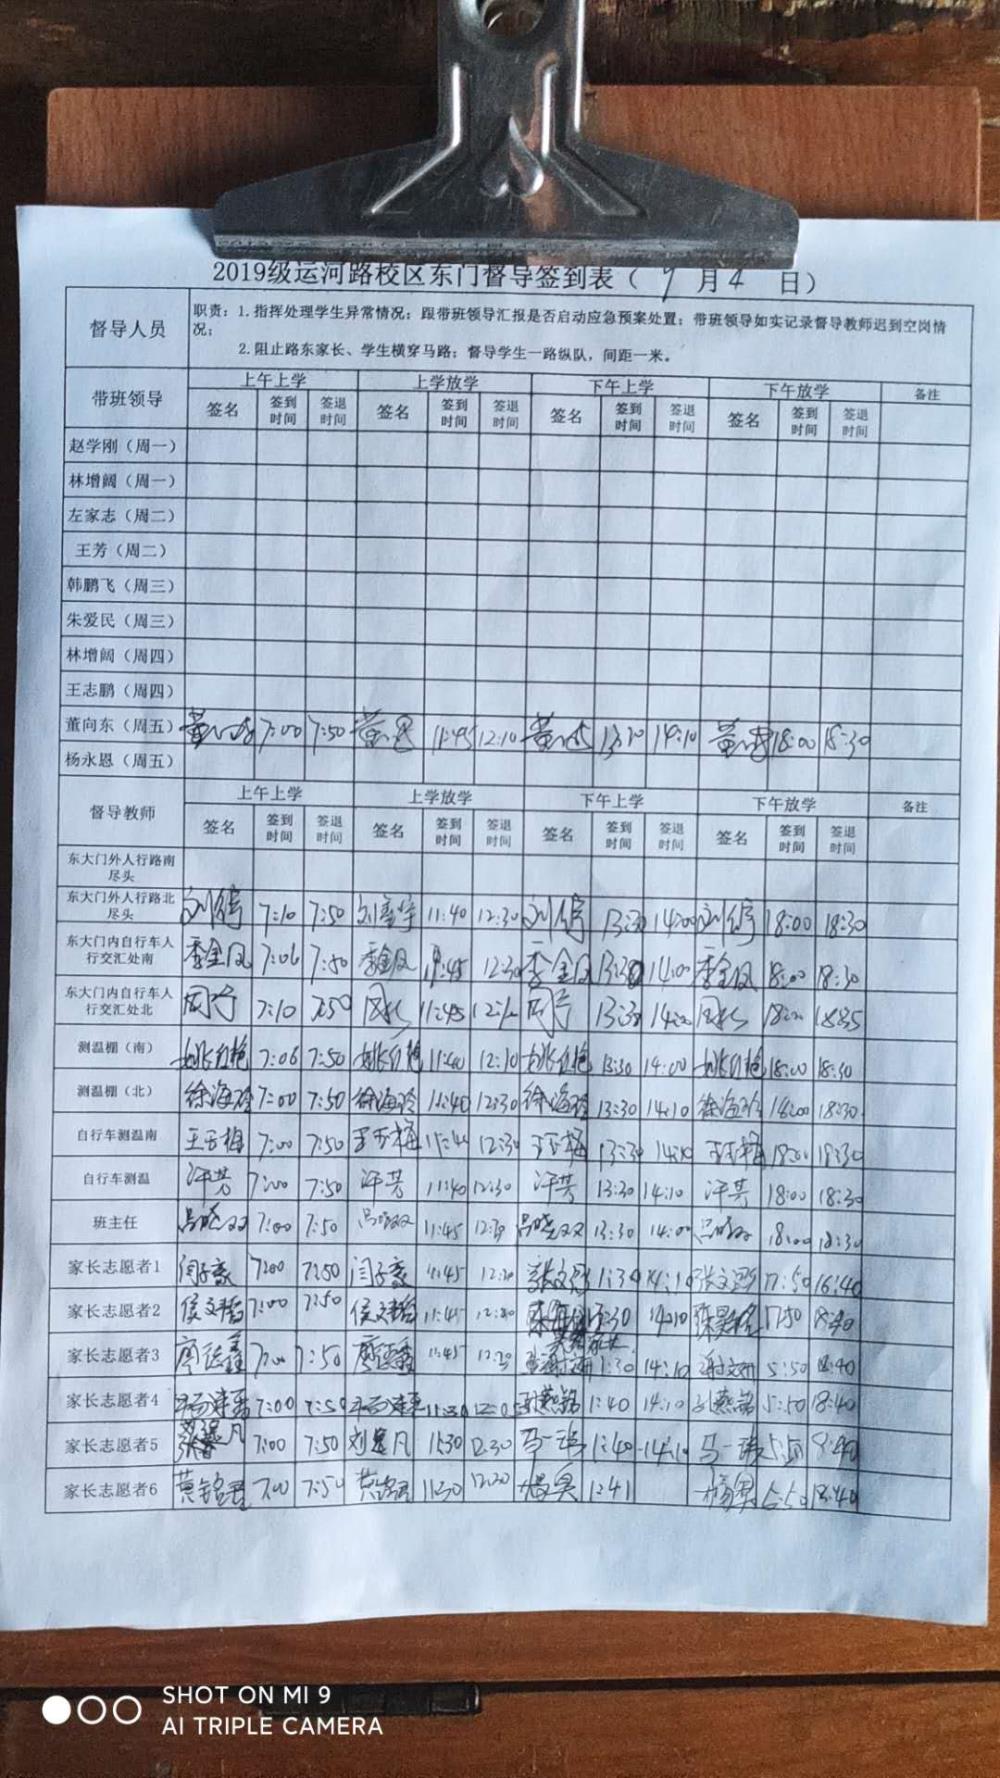 2019级运河路校区东门督导签到表（9月4日）
督导人员
职责：1.指挥处理学生异常情况；跟带班领导汇报是否启动应急预案处置；带班领导如实记录督导教师迟到空岗情
况；
2.阻止路东家长、学生横穿马路；督导学生一路纵队，间距一米。
带班领导 上午上学 上学放学 下午上学 下午放学 备注
签名 签到时间 签退时间 签名 签到时间 签退时间 签名 签到时间 签退时间 签名 签到时间 签退时间
赵学刚（周一）
林增阔（周一）
左家志（周二）
王芳（周二）
韩鹏飞（周三）
朱爱民（周三）
林增阔（周四）
王志鹏（周四）
董向东（周五） 7:00 7:50 11:45 12:10 13:30 14:10 18:00 18:30
杨永恩（周五）
督导教师 上午上学 上学放学 下午上学 下午放学 备注
签名 签到时间 签退时间 签名 签到时间 签退时间 签名 签到时间 签退时间 签名 签到时间 签退时间
东大门外人行路南
尽头
东大门外人行路北
尽头 7:10 7:50 11:40 12:30 13:30 14:00 18:00 18:30
东大门内自行车人
行交汇处南 季金凤 7:06 7:50 季金凤 12:30 季金凤 13:30 14:00 季金凤 18:00 18:30
东大门内自行车人
行交汇处北 7:10 7:50 11:45 13:30 14:00 18:35
测温棚（南） 7:06 7:50 11:40 12:10 13:30 14:00 18:00 18:30
测温棚（北） 徐海玲 7:00 7:50 徐海玲 11:40 12:30 徐海玲 13:30 14:10 徐海玲 18:00 18:30
自行车测温南 王玉梅 7:00 7:50 王玉梅 11:40 12:30 王玉梅 13:30 14:10 王玉梅 18:00 18:30
自行车测温 汪芳 7:00 7:50 汪芳 11:40 12:30 汪芳 13:30 14:10 汪芳 18:00 18:30
班主任 吕晓双 7:00 7:50 吕晓双 11:45 12:30 吕晓双 13:30 14:00 吕晓双 18:00 18:30
家长志愿者1 闫子豪 7:00 7:50 闫子豪 11:45 张文 1:30 14:10 张文 17:50
家长志愿者2 侯文 7:00 7:50 侯文 11:45 14:10 17:50 18:40
家长志愿者3 7:00 7:50 11:45 1:30 14:10 5:50 18:40
家长志愿者4 7:00 7:50 1:40 14:10 5:50 18:40
家长志愿者5 7:00 7:50 刘昱凡 11:30 12:30 马一 1:40 14:10 马一
家长志愿者6 黄铭君 7:00 7:50 11:30 12:30 杨昊 1:41 杨昊 5:50 18:40
SHOT ON MI 9
AI TRIPLE CAMERA